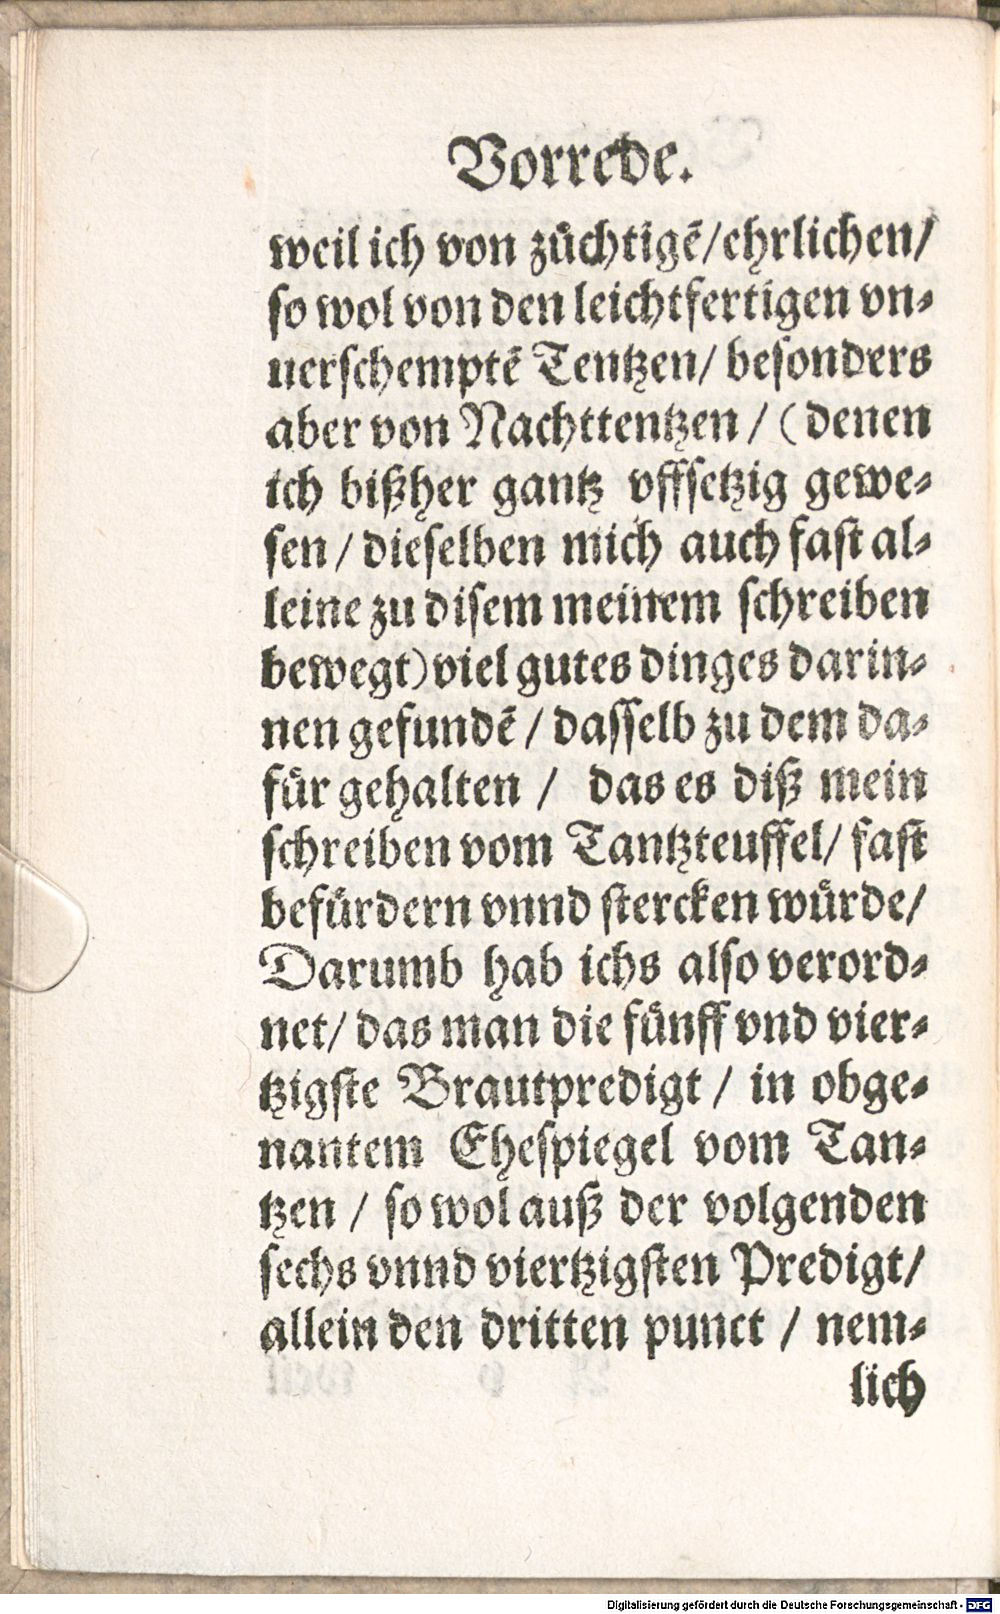 Vorrede.
weil ich von züchtigē/ehrlichen/
so wol von den leichtfertigen vn⸗
uerschemptē Tentzen/ besonders
aber von Nachttentzen / (denen
ich bißher gantz vffsetzig gewe⸗
sen / dieselben mich auch fast al⸗
leine zu disem meinem schreiben
bewegt) viel gutes dinges darin⸗
nen gefundē / dasselb zu dem da⸗
für gehalten / das es diß mein
schreiben vom Tantzteuffel/ fast
befürdern vnnd stercken würde/
Darumb hab ichs also verord⸗
net/ das man die fünff vnd vier⸗
tzigste Brautpredigt / in obge⸗
nantem Ehespiegel vom Tan⸗
tzen / so wol auß der volgenden
sechs vnnd viertzigsten Predigt/
allein den dritten punct / nem⸗
lich
Digitalisierung gefördert durch die Deutsche Forschungsgemeinschaft - DFG